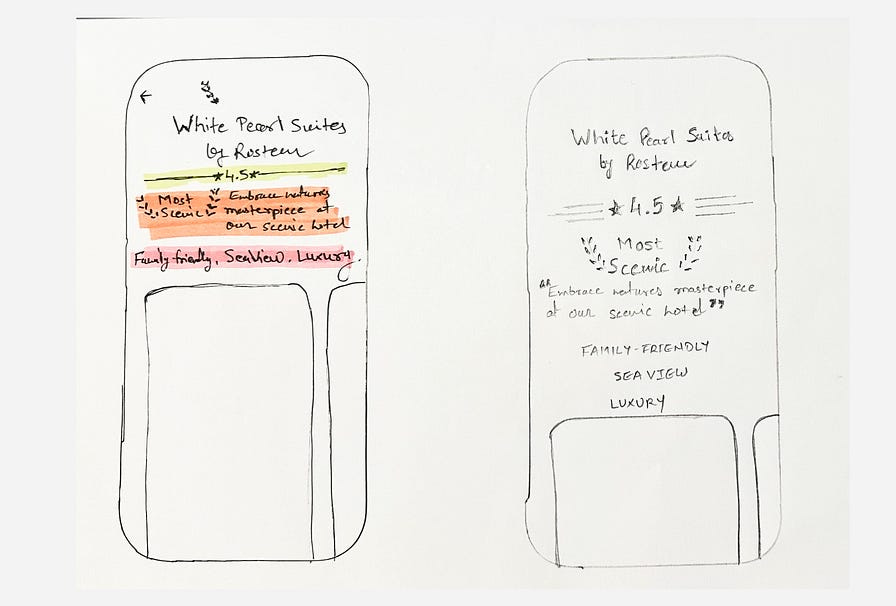 White Pearl Suites
by Rosteur
4.5
Most
Scenic
Embrace natures
masterpiece at
our scenic hotel
Family friendly, SeaView. Luxury.
White Pearl Suites
by Rosteur
4.5
Most
Scenic
"Embrace natures masterpiece
at our scenic hotel"
FAMILY-FRIENDLY
SEA VIEW
LUXURY